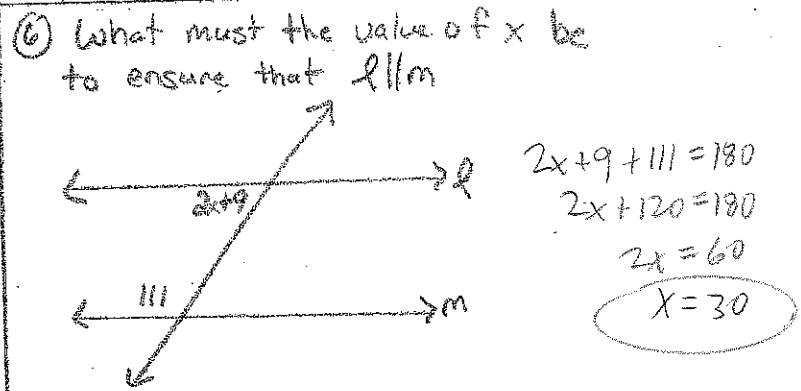 ⑥ What must the value of x be
to ensure that l||m
l
2x+9
111
m
2x+9+111=180
2x+120=180
2x=60
x=30